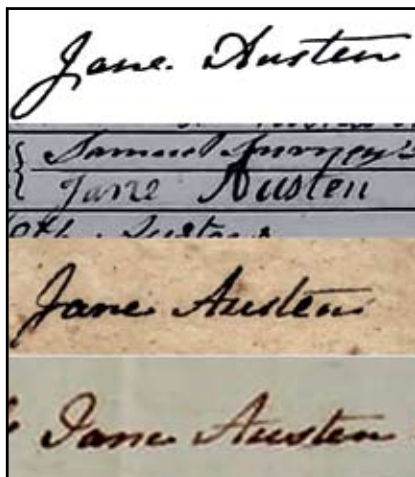 Jane. Austen
Samuel
Jane Austen
Jane Austen
Jane Austen